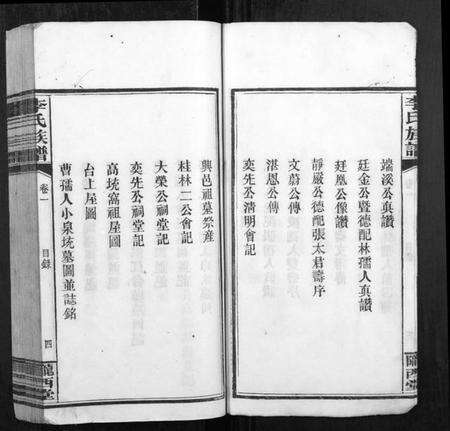 李氏族譜
瑞溪公真讚
廷金公暨德配林孺人真讚
廷凰公像讚
靜嚴公德配張太君壽序
文蔚公傳
湛恩公傳
奕先公清明會記
隴西堂
興邑祖墓祭產
桂林二公會記
大榮公祠堂記
奕先公祠堂記
高坑窩祖屋圖
台上屋圖
曹孺人小泉坑墓圖並誌銘
李氏族譜
卷一
目錄
四
隴西堂